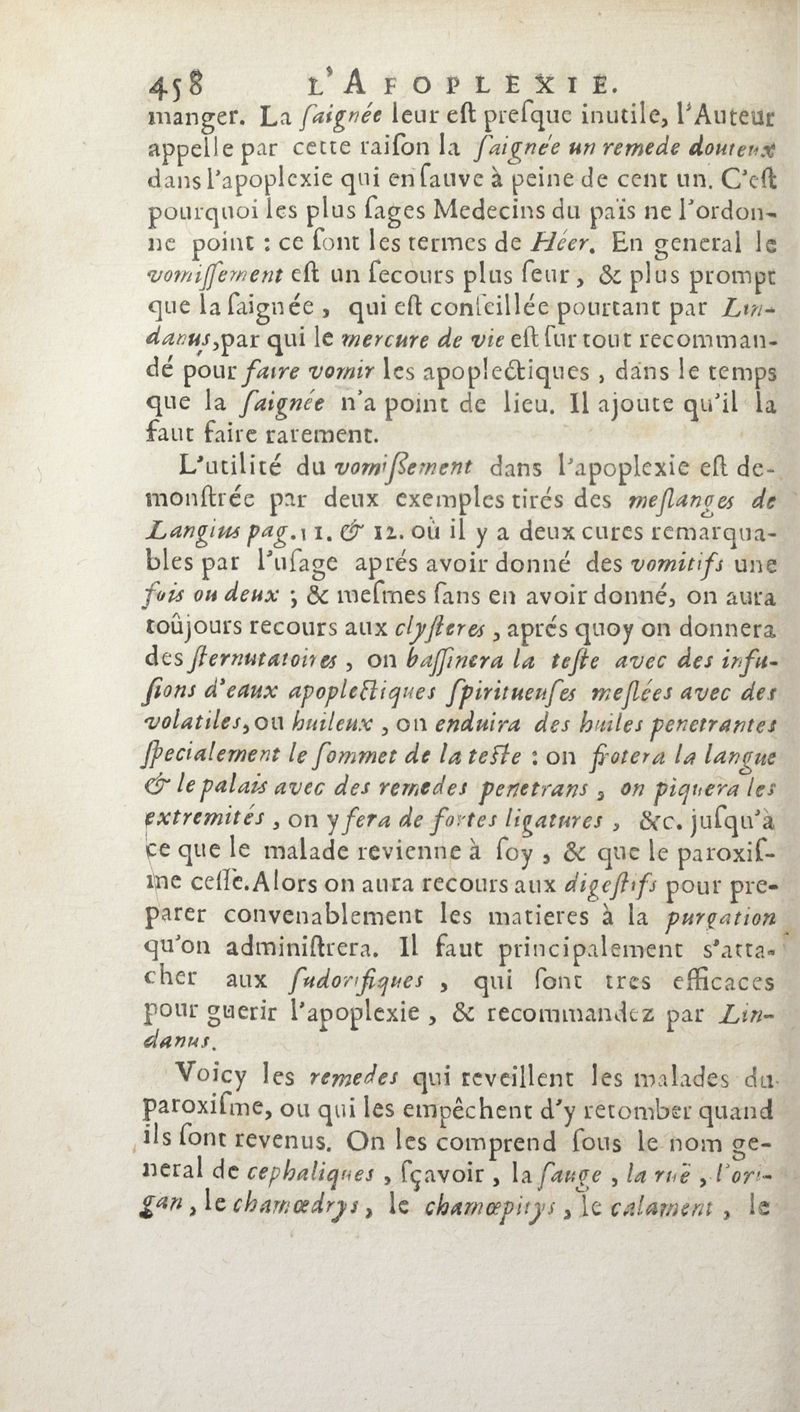 458 L'APOPLEXIE.
manger. La ſaignée leur eſt preſque inutile, l'Auteur
appelle par cette raiſon la ſaignée un remede douteux
dans l'apoplexie qui en ſauve à peine de cent un. C'eſt
pourquoi les plus ſages Medecins du païs ne l'ordon-
ne point : ce ſont les termes de Héer. En general le
vomiſſement eſt un ſecours plus ſeur, & plus prompt
que la ſaignée , qui eſt conſeillée pourtant par Lin-
danus,par qui le mercure de vie eſt ſur tout recomman-
dé pour faire vomir les apoplectiques , dans le temps
que la ſaignée n'a point de lieu. Il ajoute qu'il la
faut faire rarement.
L'utilité du vomiſſement dans l'apoplexie eſt de-
monſtrée par deux exemples tirés des meſlanges de
Langius pag. 11. & 12. où il y a deux cures remarqua-
bles par l'uſage aprés avoir donné des vomitifs une
fois ou deux ; & meſmes ſans en avoir donné, on aura
toûjours recours aux clyſteres , aprés quoy on donnera
des ſternutatoires , on baſſinera la teſte avec des infu-
ſions d'eaux apoplectiques ſpiritueuſes meſlées avec des
volatiles, ou huileux , on enduira des huiles penetrantes
ſpecialement le ſommet de la teſte : on frotera la langue
& le palais avec des remedes penetrans , on piquera les
extremités , on y fera de fortes ligatures , &c. juſqu'à
ce que le malade revienne à ſoy , & que le paroxiſ-
me ceſſe. Alors on aura recours aux digeſtifs pour pre-
parer convenablement les matieres à la purgation
qu'on adminiſtrera. Il faut principalement s'atta-
cher aux ſudorifiques , qui ſont tres efficaces
pour guerir l'apoplexie , & recommandez par Lin-
danus.
Voicy les remedes qui reveillent les malades du
paroxiſme, ou qui les empêchent d'y retomber quand
ils ſont revenus. On les comprend ſous le nom ge-
neral de cephaliques , ſçavoir , la ſauge , la ruë , l'ori-
gan , le chamœdrys , le chamœpitys , le calament , le